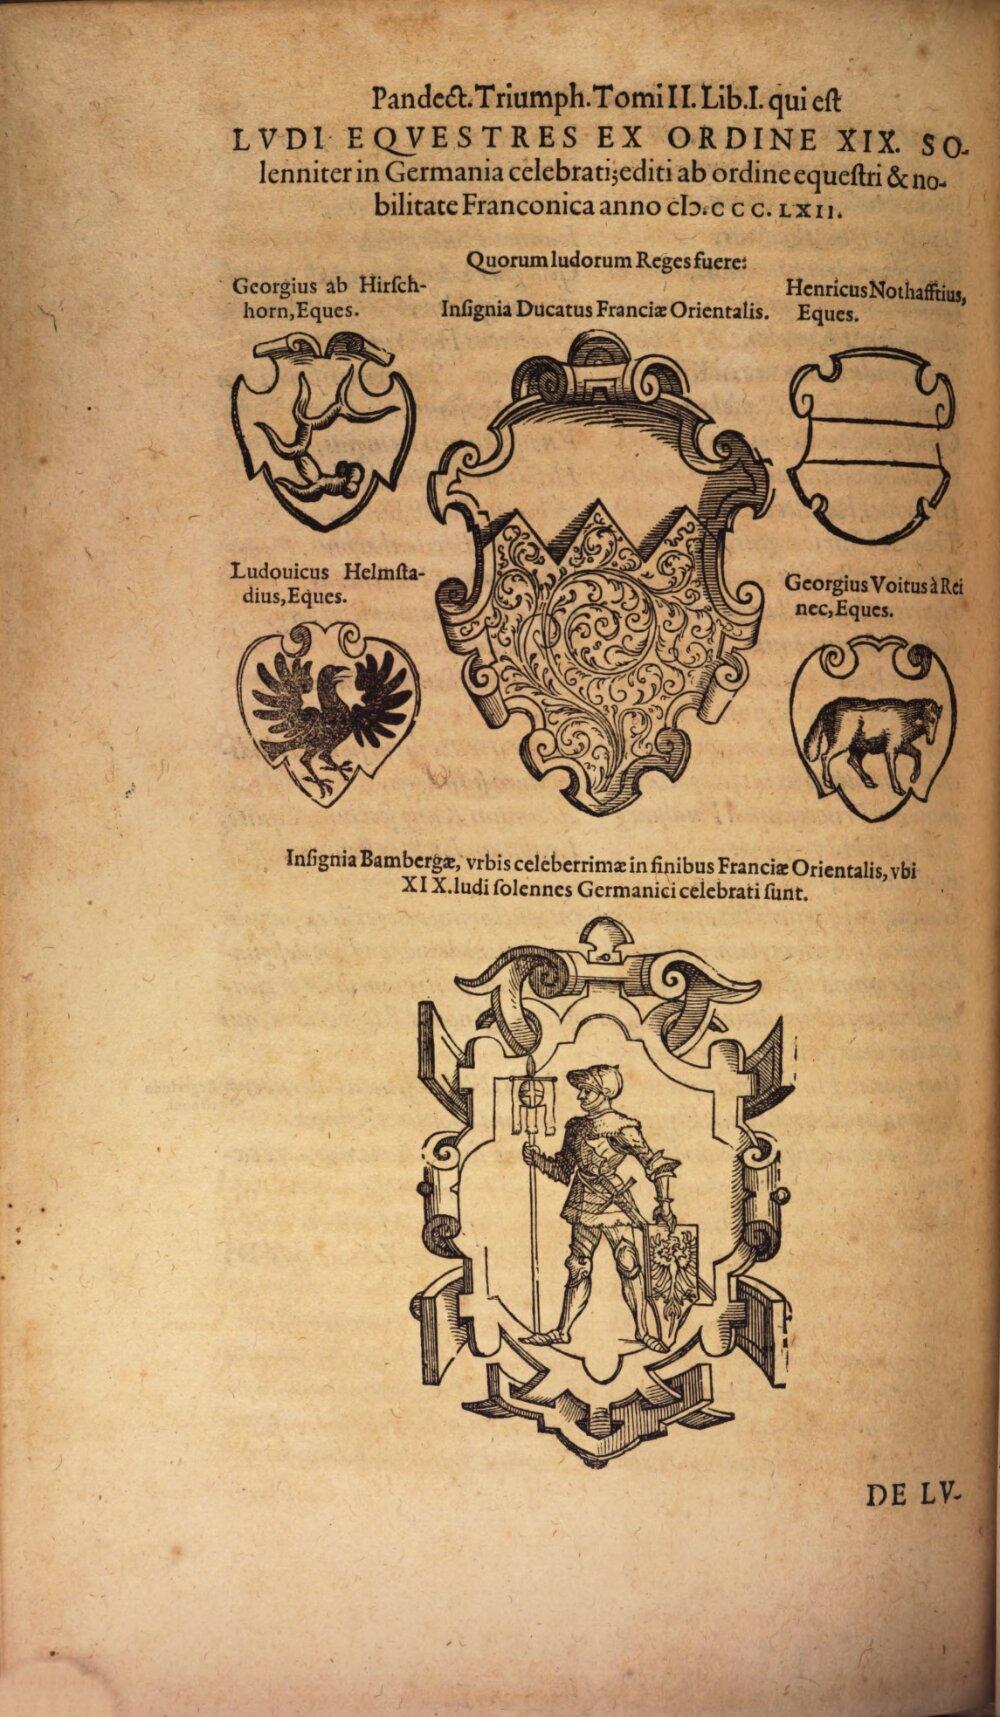 Pandect. Triumph. Tomi II. Lib. I. qui eſt
LVDI EQVESTRES EX ORDINE XIX. SO-
lenniter in Germania celebrati; editi ab ordine equeſtri & no-
bilitate Franconica anno cIↄ. c c c. LXII.
Quorum ludorum Reges fuere:
Georgius ab Hirſch-
horn, Eques.
Inſignia Ducatus Franciæ Orientalis.
Henricus Nothafftius,
Eques.
Ludouicus Helmſta-
dius, Eques.
Georgius Voitus à Rei
nec, Eques.
Inſignia Bambergæ, vrbis celeberrimæ in finibus Franciæ Orientalis, vbi
XIX. ludi ſolennes Germanici celebrati ſunt.
DE LV-